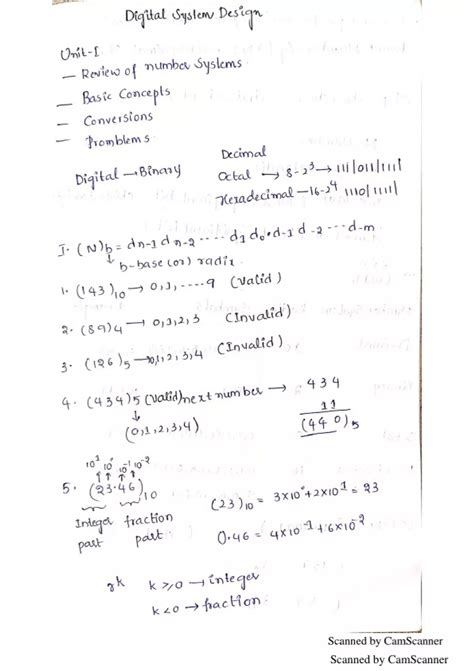 Digital System Design
Unit-I
— Review of number Systems
— Basic Concepts
— Conversions
— Promblems
Decimal
Digital → Binary
Octal → 8-2³ → 111|011|111|
Hexadecimal → 16-2⁴ 1110|1111|
I. (N)b = dn-1 dn-2 ----- d1 d0 . d-1 d-2 --- d-m
↓ b-base (or) radix
1. (143)10 → 0,1,-----9 (Valid)
2. (89)4 → 0,1,2,3 (Invalid)
3. (126)5 → 0,1,2,3,4 (Invalid)
4. (434)5 (Valid) next number → 434
↓
(0,1,2,3,4)
11
(440)5
10¹ 10⁰ 10⁻¹ 10⁻²
5. (23.46)10
(23)10 = 3×10⁰+2×10¹ = 23
Integer part
fraction part
0.46 = 4×10⁻¹+6×10⁻²
rk
k ≥ 0 → integer
k < 0 → fraction.
Scanned by CamScanner
Scanned by CamScanner